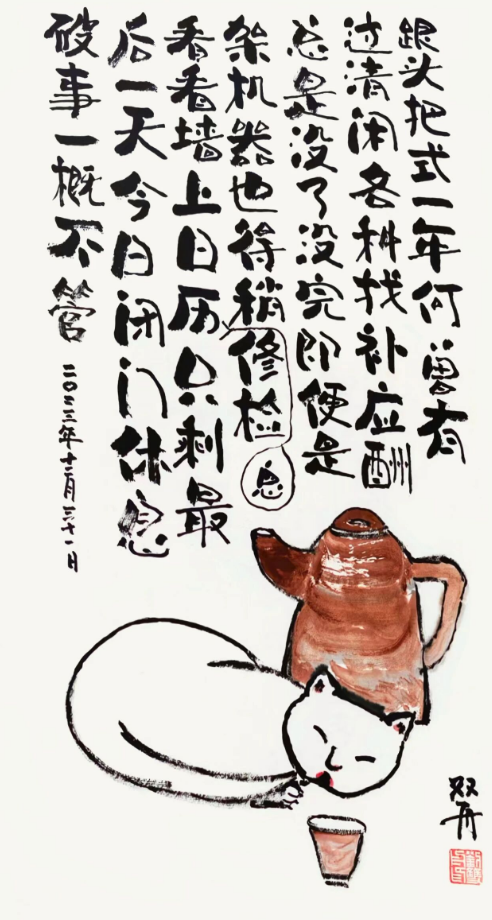 跟头把式一年何曾有
过清闲各种找补应酬
总是没了没完即便是
架机器也得稍修检
息
看看墙上日历只剩最
后一天今日闭门休息
破事一概不管
二〇二三年十二月三十一日
双舟